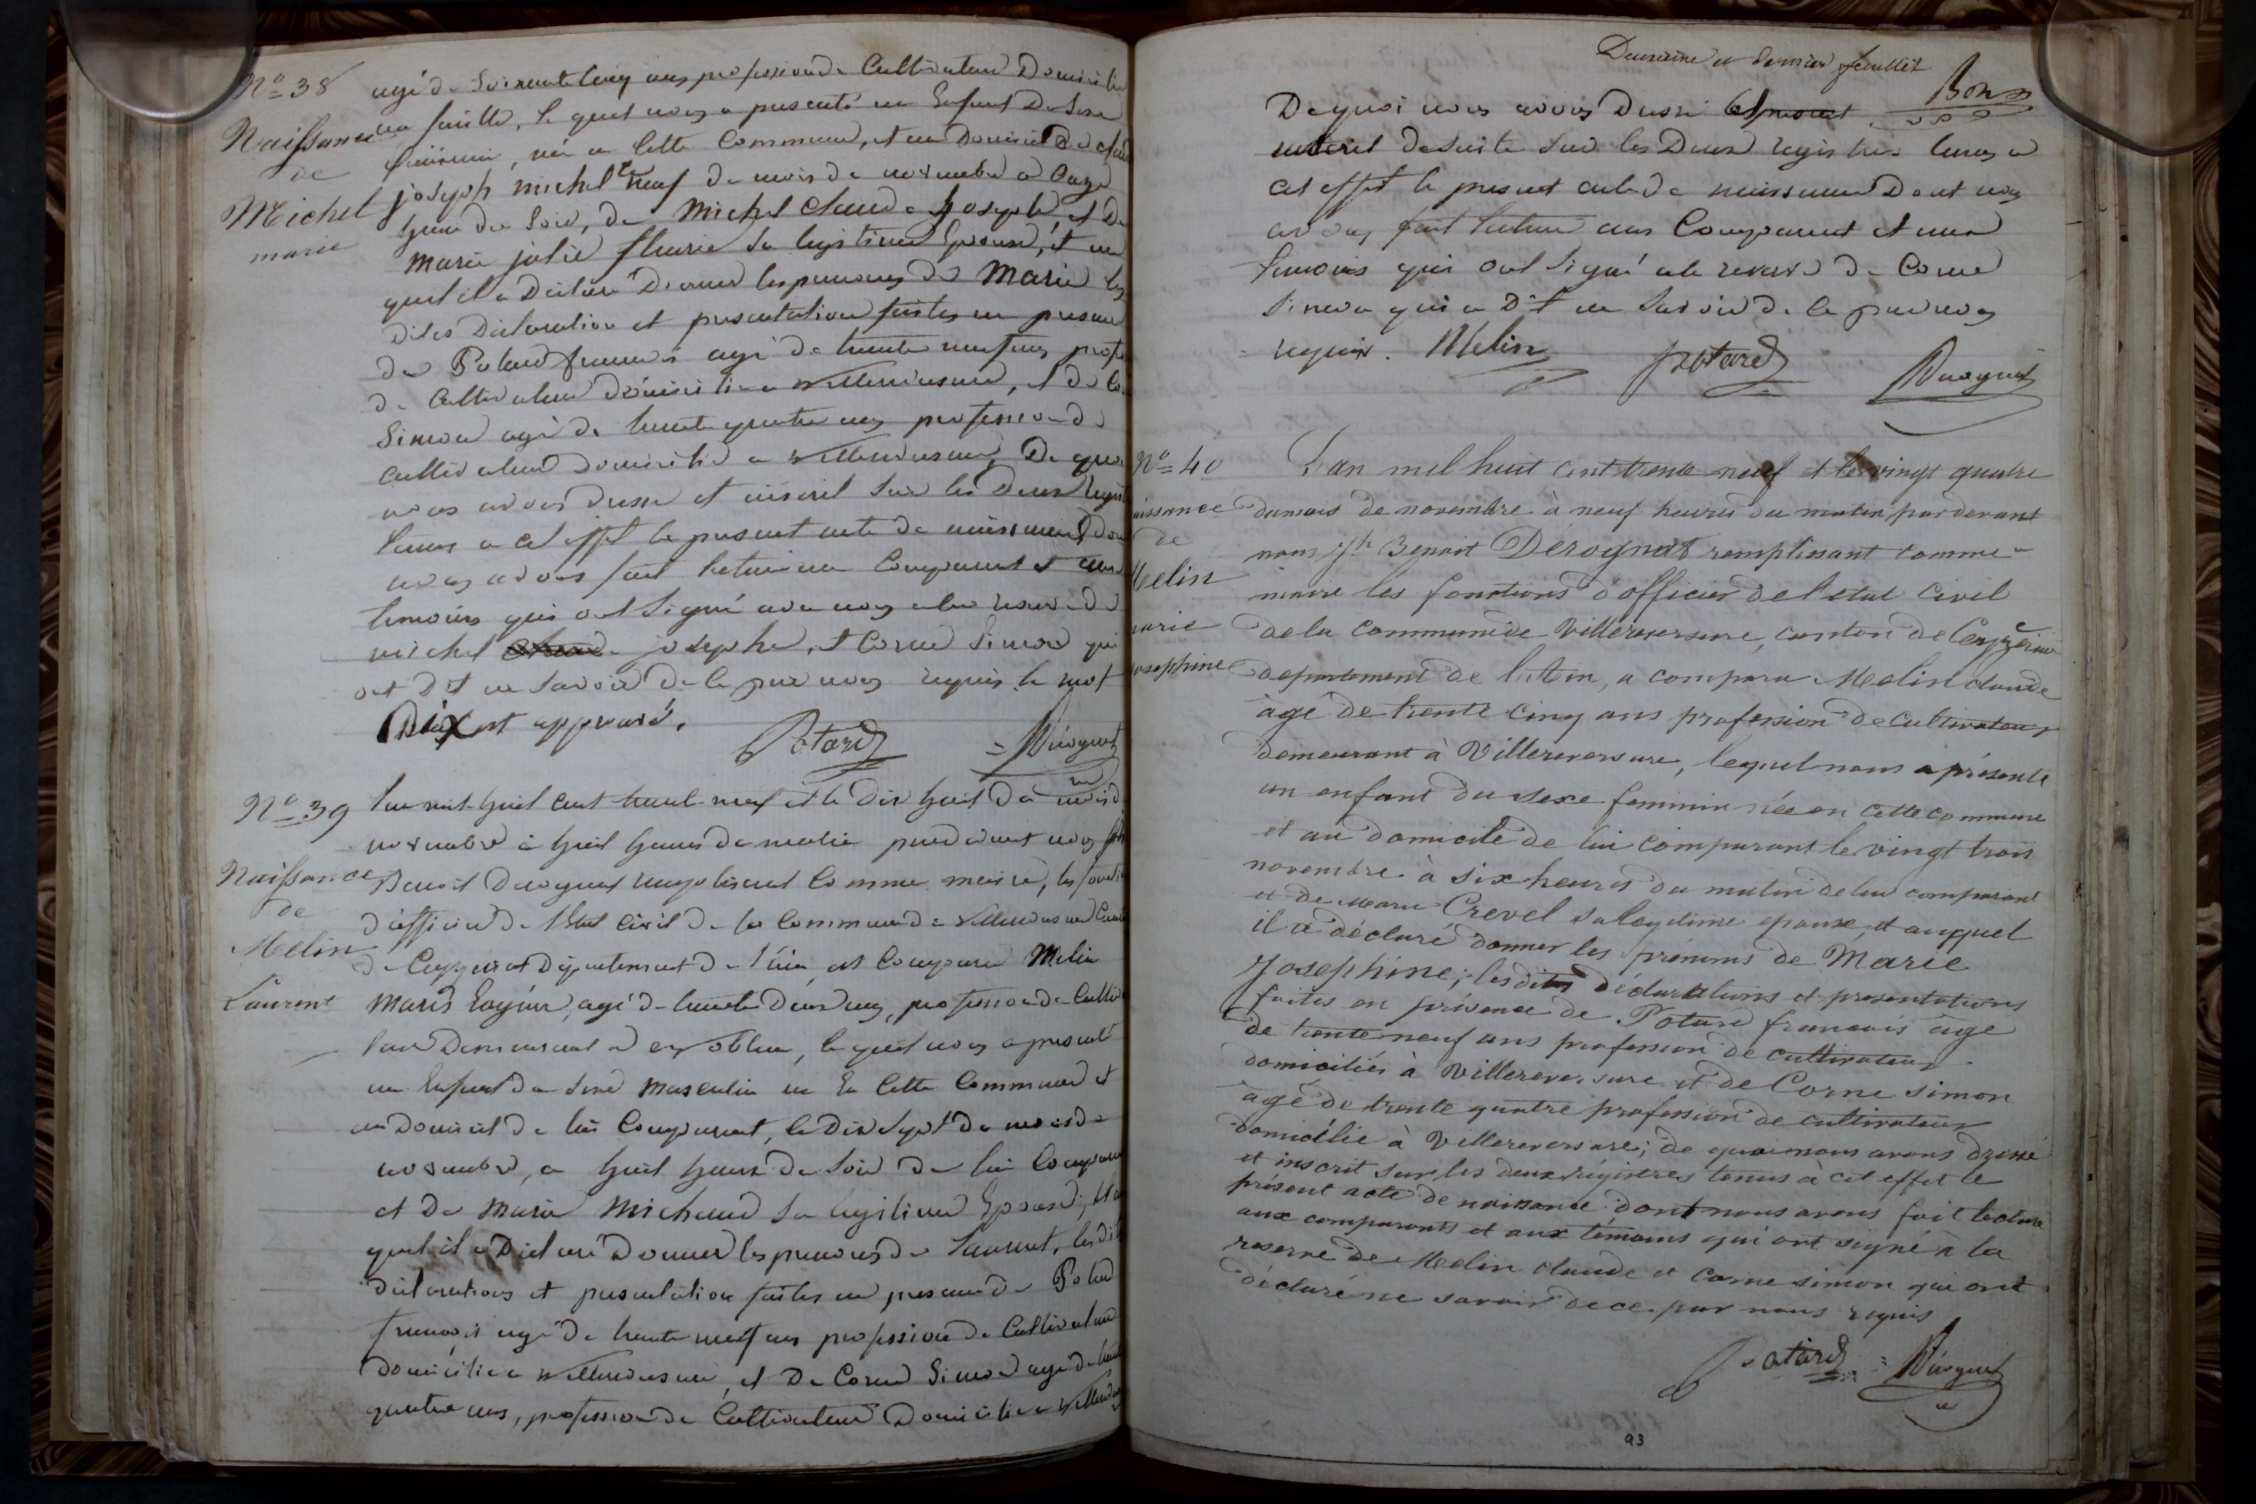 N° 38
Naissance
de
Michel
marie
agé de Soixante Cinq ans profession de Cultivateur Domicilié
au feuille, le quel nous a presenté un Enfant Du Sexe
feminin, née en Cette Commune, et au Domicile de
joseph michel le neuf du mois de novembre a onze
heure du Soir, de Michel Claude Joseph et De
Marie julie fleurie Sa legitime Epouse, et au
quel il a Declaré Donner les prenoms de Marie les
dites Declaration et presentation faites en presence
de Potard francois agé de trente neuf ans profession
de Cultivateur domicilié a Villereversure, et de Corne
Simon agé de trente quatre ans profession de
cultivateur domicilié a Villereversure, De quoi
nous avons Dressé et inscrit Sur les Deux registres
tenus a cet effet le present acte de naissance dont
nous avons fait lecture au Comparant et aux
temoins qui ont Signé avec nous a la reserve de
michel joseph, et Corne Simon qui
ont Dit ne Savoir de le par nous requis le mot
Dix est approuvé.
Potard = Dérognat
N° 39
Naissance
de
Melin
Laurent
L'an mil huit cent trente neuf et le Dix huit Du mois de
novembre à huit heures du matin pardevant nous
Benoit Derognat remplissant Comme maire, les fonctions
d'officier de l'Etat Civil de la Commune de Villereversure Canton
de Ceyzeriat Département de l'ain est Comparu Melin
Marie agé de trente Deux ans, profession de Cultiva
teur Demeurant a, le quel nous a presenté
un Enfant du Sexe Masculin né En Cette Commune et
au Domicile de lui Comparant, le Dix Sept du mois de
novembre, a huit heure du Soir de lui Comparant
et De Marie Michaud Sa legitime Epouse; et au
quel il a Déclaré Donner les prenoms de Laurent, les dites
déclarations et presentation faites en presence de Potard
francois agé de trente neuf ans profession de Cultivateur
domicilié a Villereversure, et De Corne Simon agé de trente
quatre ans, profession de Cultivateur Domicilié a Villereversure
Deuxième et dernier feuillet
Bon
De quoi nous avons Dressé et
inscrit de Suite Sur les Deux registres tenus a
cet effet le present acte de naissance Dont nous
avons fait lecture aux Comparant et aux
temoins qui ont Signé a la reserve de Corne
Simon qui a Dit ne Savoir de le par nous
requis. Melin Potard Dérognat
N° 40
aissance
de
Melin
marie
josephine
L'an mil huit cent trente neuf et le vingt quatre
du mois de novembre à neuf heures du matin par devant
nous jh Benoit Dérognat remplissant comme
maire les fonctions d'officier de l'etat civil
de la commune de Villereversure, canton de Ceyzériat
departement de l'Ain, a comparu Melin claude
âgé de trente cinq ans profession de cultivateur
demeurant à Villereversure, lequel nous a présenté
un enfant du sexe feminin née en cette commune
et au domicile de lui comparant le vingt trois
novembre à six heures du matin de lui comparant
et de Marie Crevel sa legitime epouse, et auquel
il a déclaré donner les prénoms de Marie
Josephine; les dites déclarations et presentations
faites en présence de Potard francois âgé
de trente neuf ans profession de cultivateur
domiciliés à Villereversure et de Corne simon
agé de trente quatre profession de cultivateur
domicilié à Villereversure; de quoi nous avons dressé
et inscrit sur les deux régistres tenus à cet effet le
présent acte de naissance dont nous avons fait lecture
aux comparants et aux témoins qui ont signé à la
reserve de Melin claude et Corne simon qui ont
déclaré ne savoir de ce par nous requis
Potard = Dérognat
93